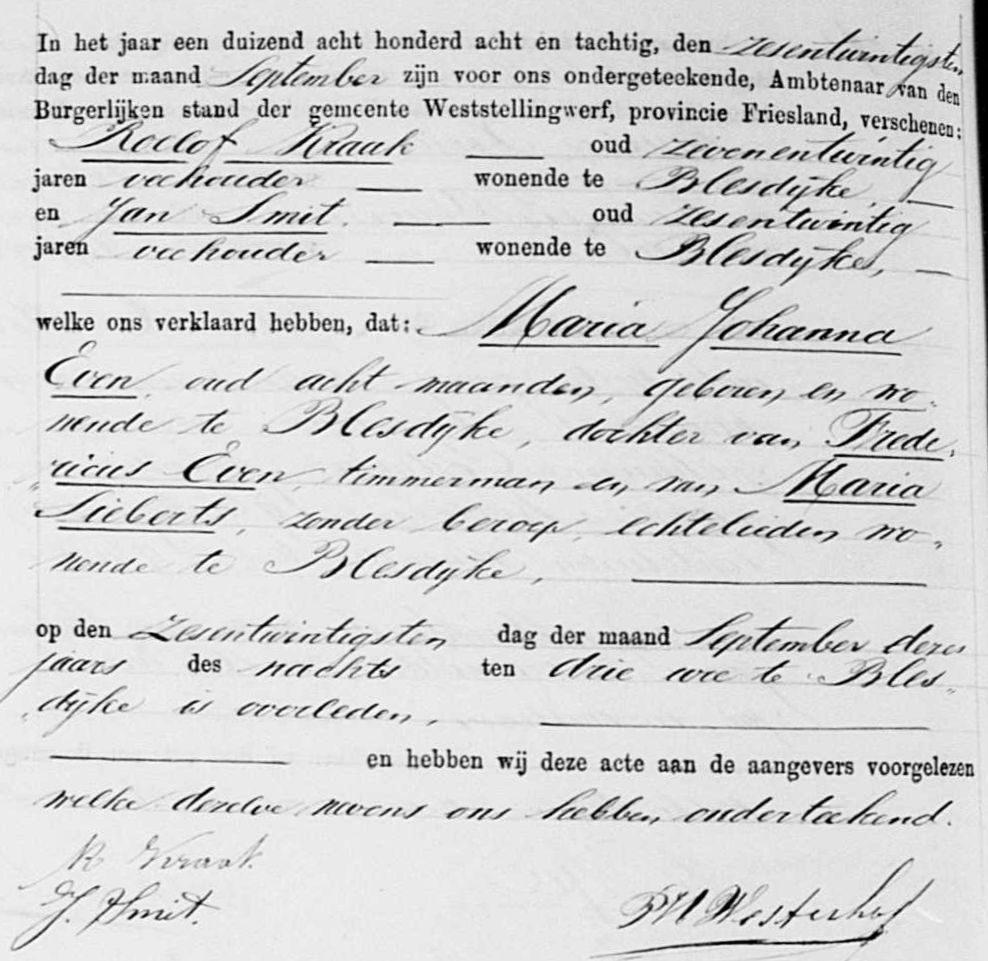 In het jaar een duizend acht honderd acht en tachtig, den zesentwintigsten
dag der maand September zijn voor ons ondergeteekende, Ambtenaar van den
Burgerlijken stand der gemeente Weststellingwerf, provincie Friesland, verschenen:
Roelof Kraak oud zevenentwintig
jaren veehouder wonende te Blesdijke,
en Jan Smit oud zesentwintig
jaren veehouder wonende te Blesdijke,
welke ons verklaard hebben, dat: Maria Johanna
Even, oud acht maanden, geboren en wo-
nende te Blesdijke, dochter van Frede-
ricus Even, timmerman en van Maria
Sieberts, zonder beroep, echtelieden wo-
nende te Blesdijke,
op den zesentwintigsten dag der maand September dezes
jaars des nachts ten drie ure te Bles-
dijke is overleden.
en hebben wij deze acte aan de aangevers voorgelezen
welke dezelve nevens ons hebben onderteekend.
R Kraak
J. Smit.
PH Westerhof